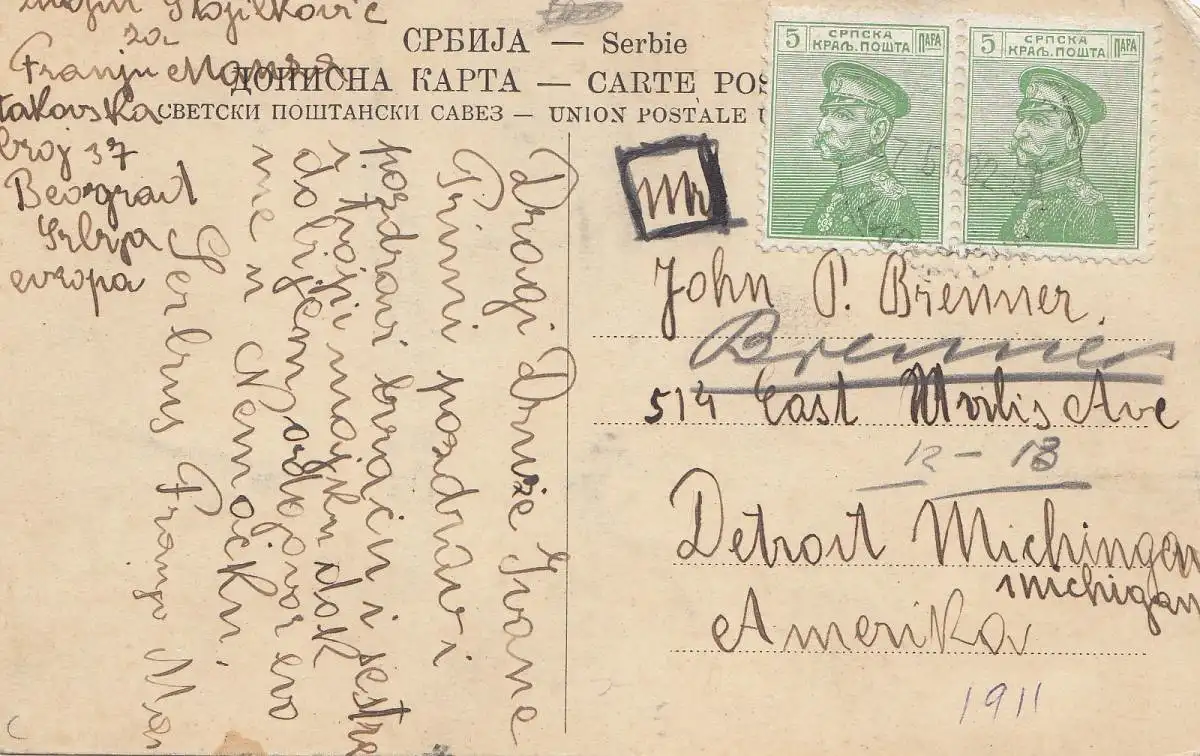 Stojilković
za
Franju
Takovska
broj 37
Beograd
Srbija
evropa
СРБИЈА — Serbie
ДОПИСНА КАРТА — CARTE POS
СВЕТСКИ ПОШТАНСКИ САВЕЗ — UNION POSTALE U
5 СРПСКА ПАРА
КРАЉ. ПОШТА
5 СРПСКА ПАРА
КРАЉ. ПОШТА
Dragi Druže Ivane
Primi pozdrav i
pozdravi braću i sestre
i tvoji majku dok
dobijem odgovor evo
me u Nemačku.
Serbus Franjo
Mr
John P. Brenner.
Brenner
514 East Ave
12 - 13
Detroit Michingan
michigan
Amerika
1911